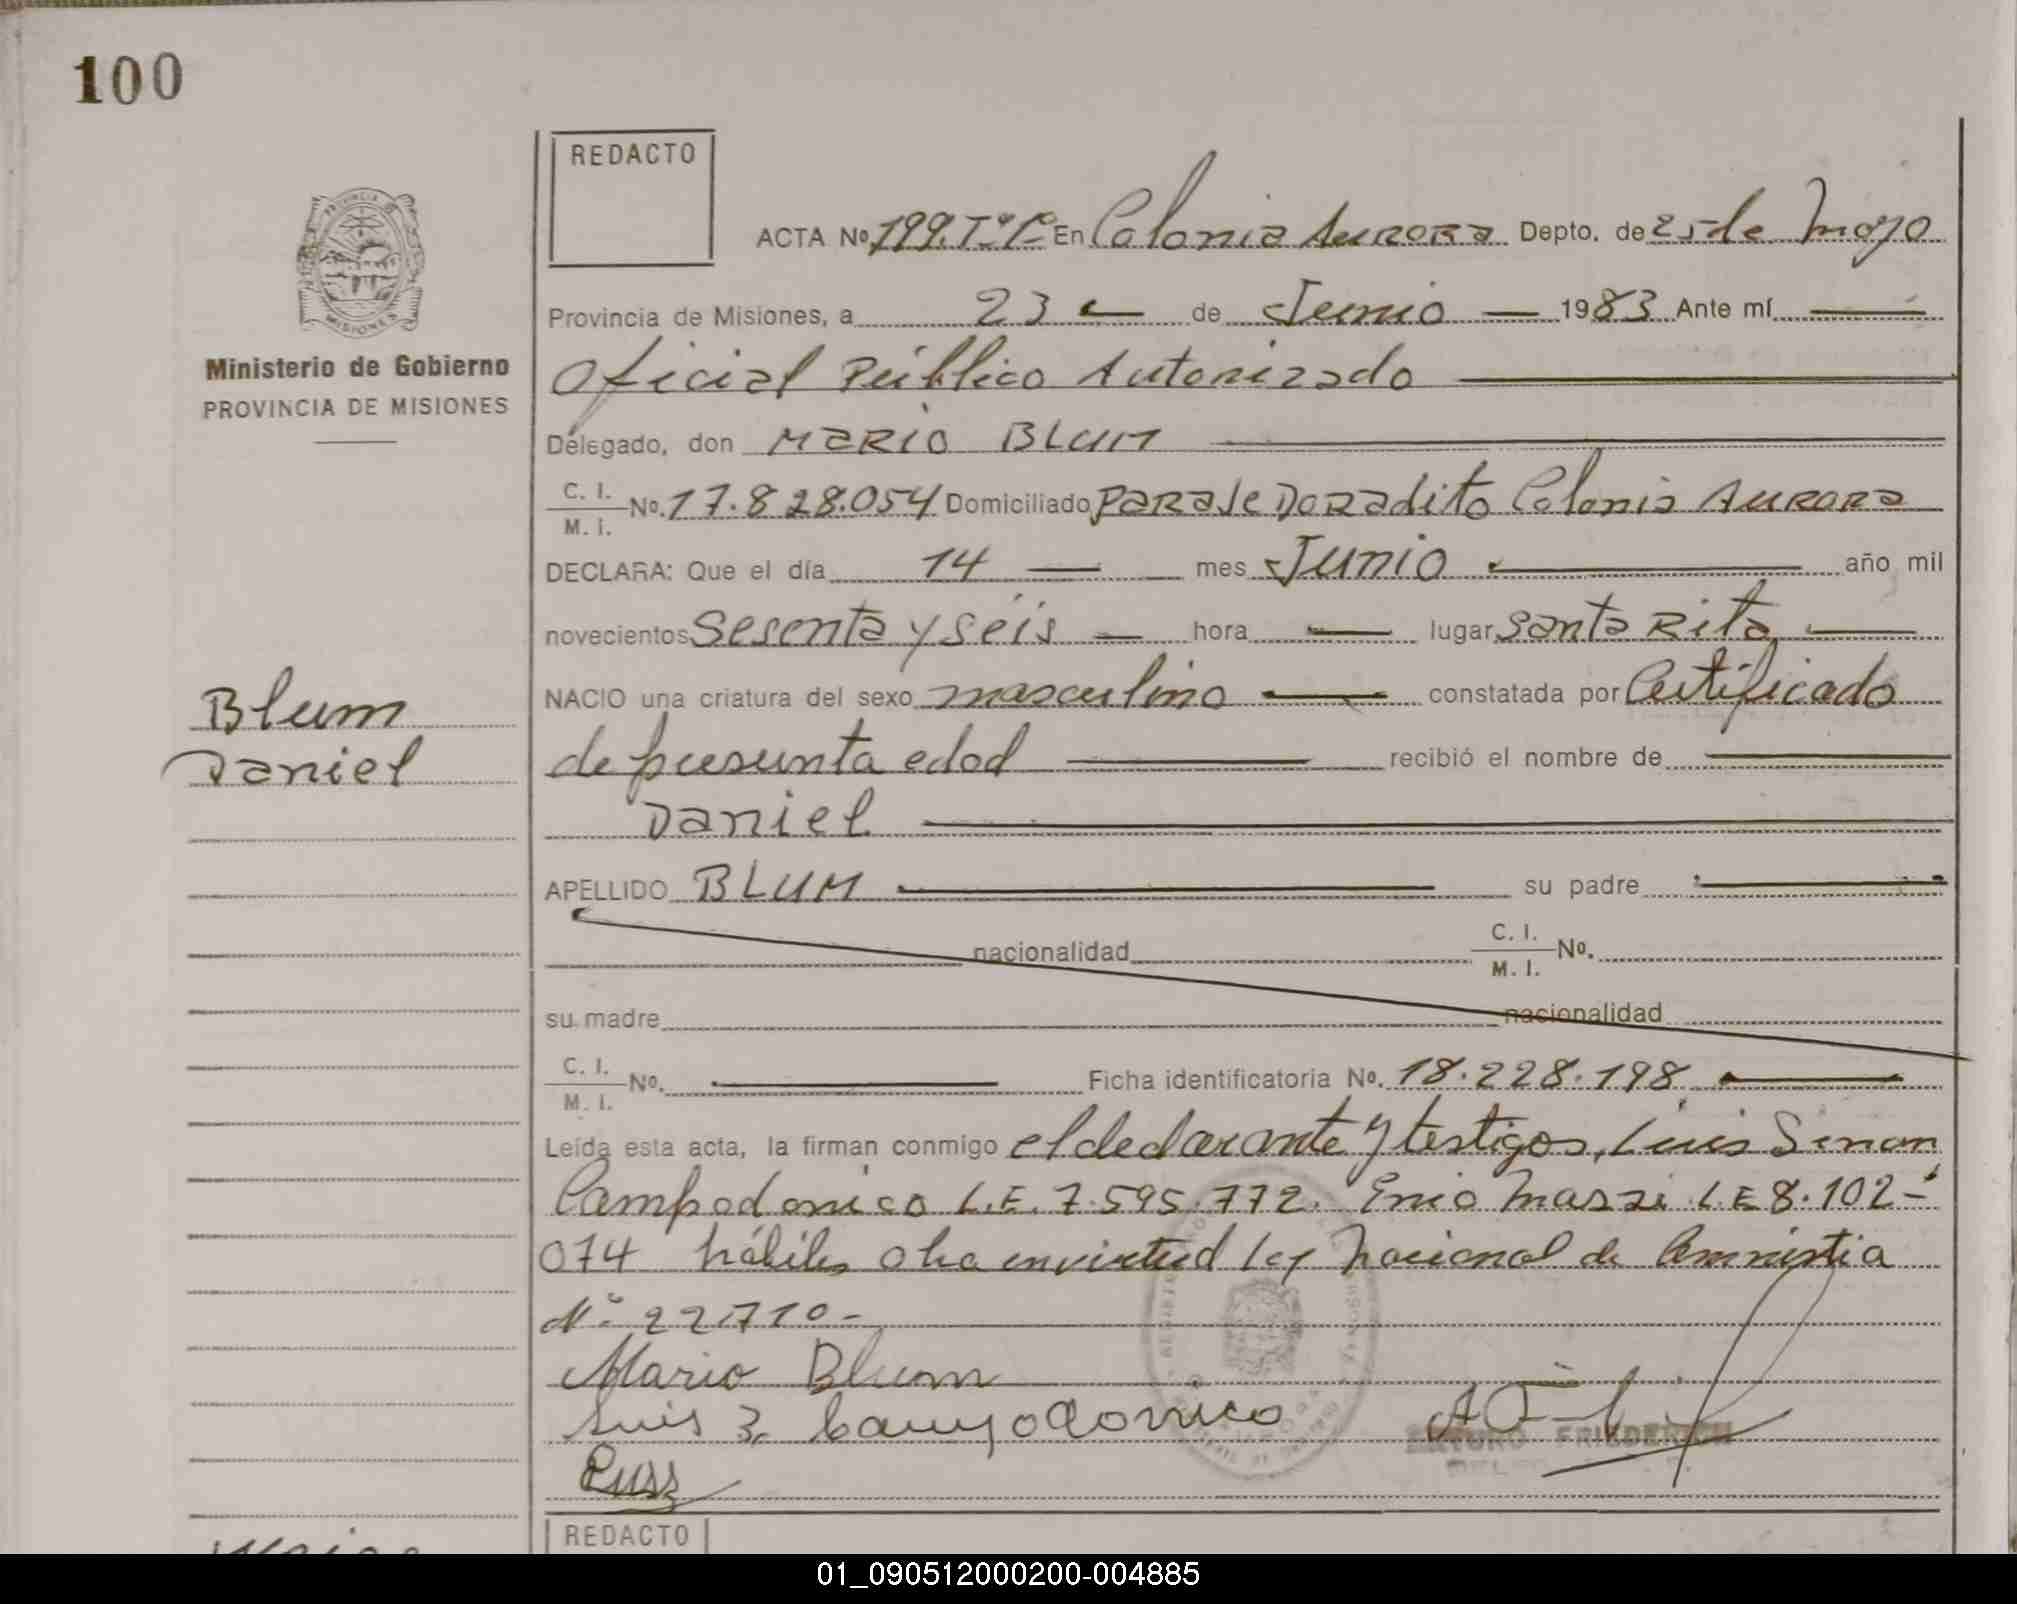 100
REDACTO
ACTA Nº 199. Tº 1º En Colonia Aurora Depto. de 25 de Mayo
PROVINCIA DE
MISIONES
Provincia de Misiones, a 23 de Junio 1983 Ante mí
Ministerio de Gobierno
PROVINCIA DE MISIONES
Oficial Público Autorizado
Delegado, don MARIO BLUM
C. I.
M. I. No. 17.828.054 Domiciliado PARAJE DORADITO Colonia AURORA
DECLARA: Que el día 14 mes Junio año mil
novecientos Sesenta y Séis hora lugar Santa Rita
NACIO una criatura del sexo masculino constatada por Certificado
Blum
Daniel
de presunta edad recibió el nombre de
Daniel
APELLIDO BLUM su padre
nacionalidad C. I.
M. I. No.
su madre nacionalidad
C. I.
M. I. No. Ficha identificatoria No. 18.228.198
Leída esta acta, la firman conmigo el declarante y testigos, Luis Senon
Campodonico L.E. 7.595.772. Enio Massi L.E 8.102-
074 hábiles en virtud ley Nacional de Amnistia
Nº 22.710-
Mario Blum
Luis Z. Campodonico
ARTURO FRIEDERICH
REDACTO
01_090512000200-004885